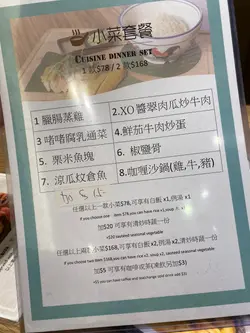 小菜套餐
CUISINE DINNER SET
1 款$78 / 2 款$168
1 臘腸蒸雞
2.XO 醬翠肉瓜炒牛肉
3 啫啫腐乳通菜
4 鮮茄牛肉炒蛋
5. 粟米魚塊
6. 椒鹽骨
7. 涼瓜炆倉魚
8.咖喱沙鍋(雞,牛,豬)
任選以上一款小菜$78,可享有白飯 x1,例湯 x1
if you choose one item $78,you can have rice x1,soup x1
加$20 可享有清炒時蔬一份
+$20 sauteed seasonal vegetable
任選以上兩款小菜$168,可享有白飯 x2,例湯 x2,清炒時蔬一份
加$5 可享有咖啡或茶(凍飲另加$3)